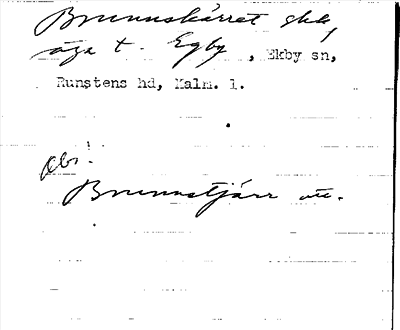 Brunnskärret skk,
äga t. Egby, Ekby sn,
Runstens hd, Kalm. l.
obs!
Brunnstjärr utt.